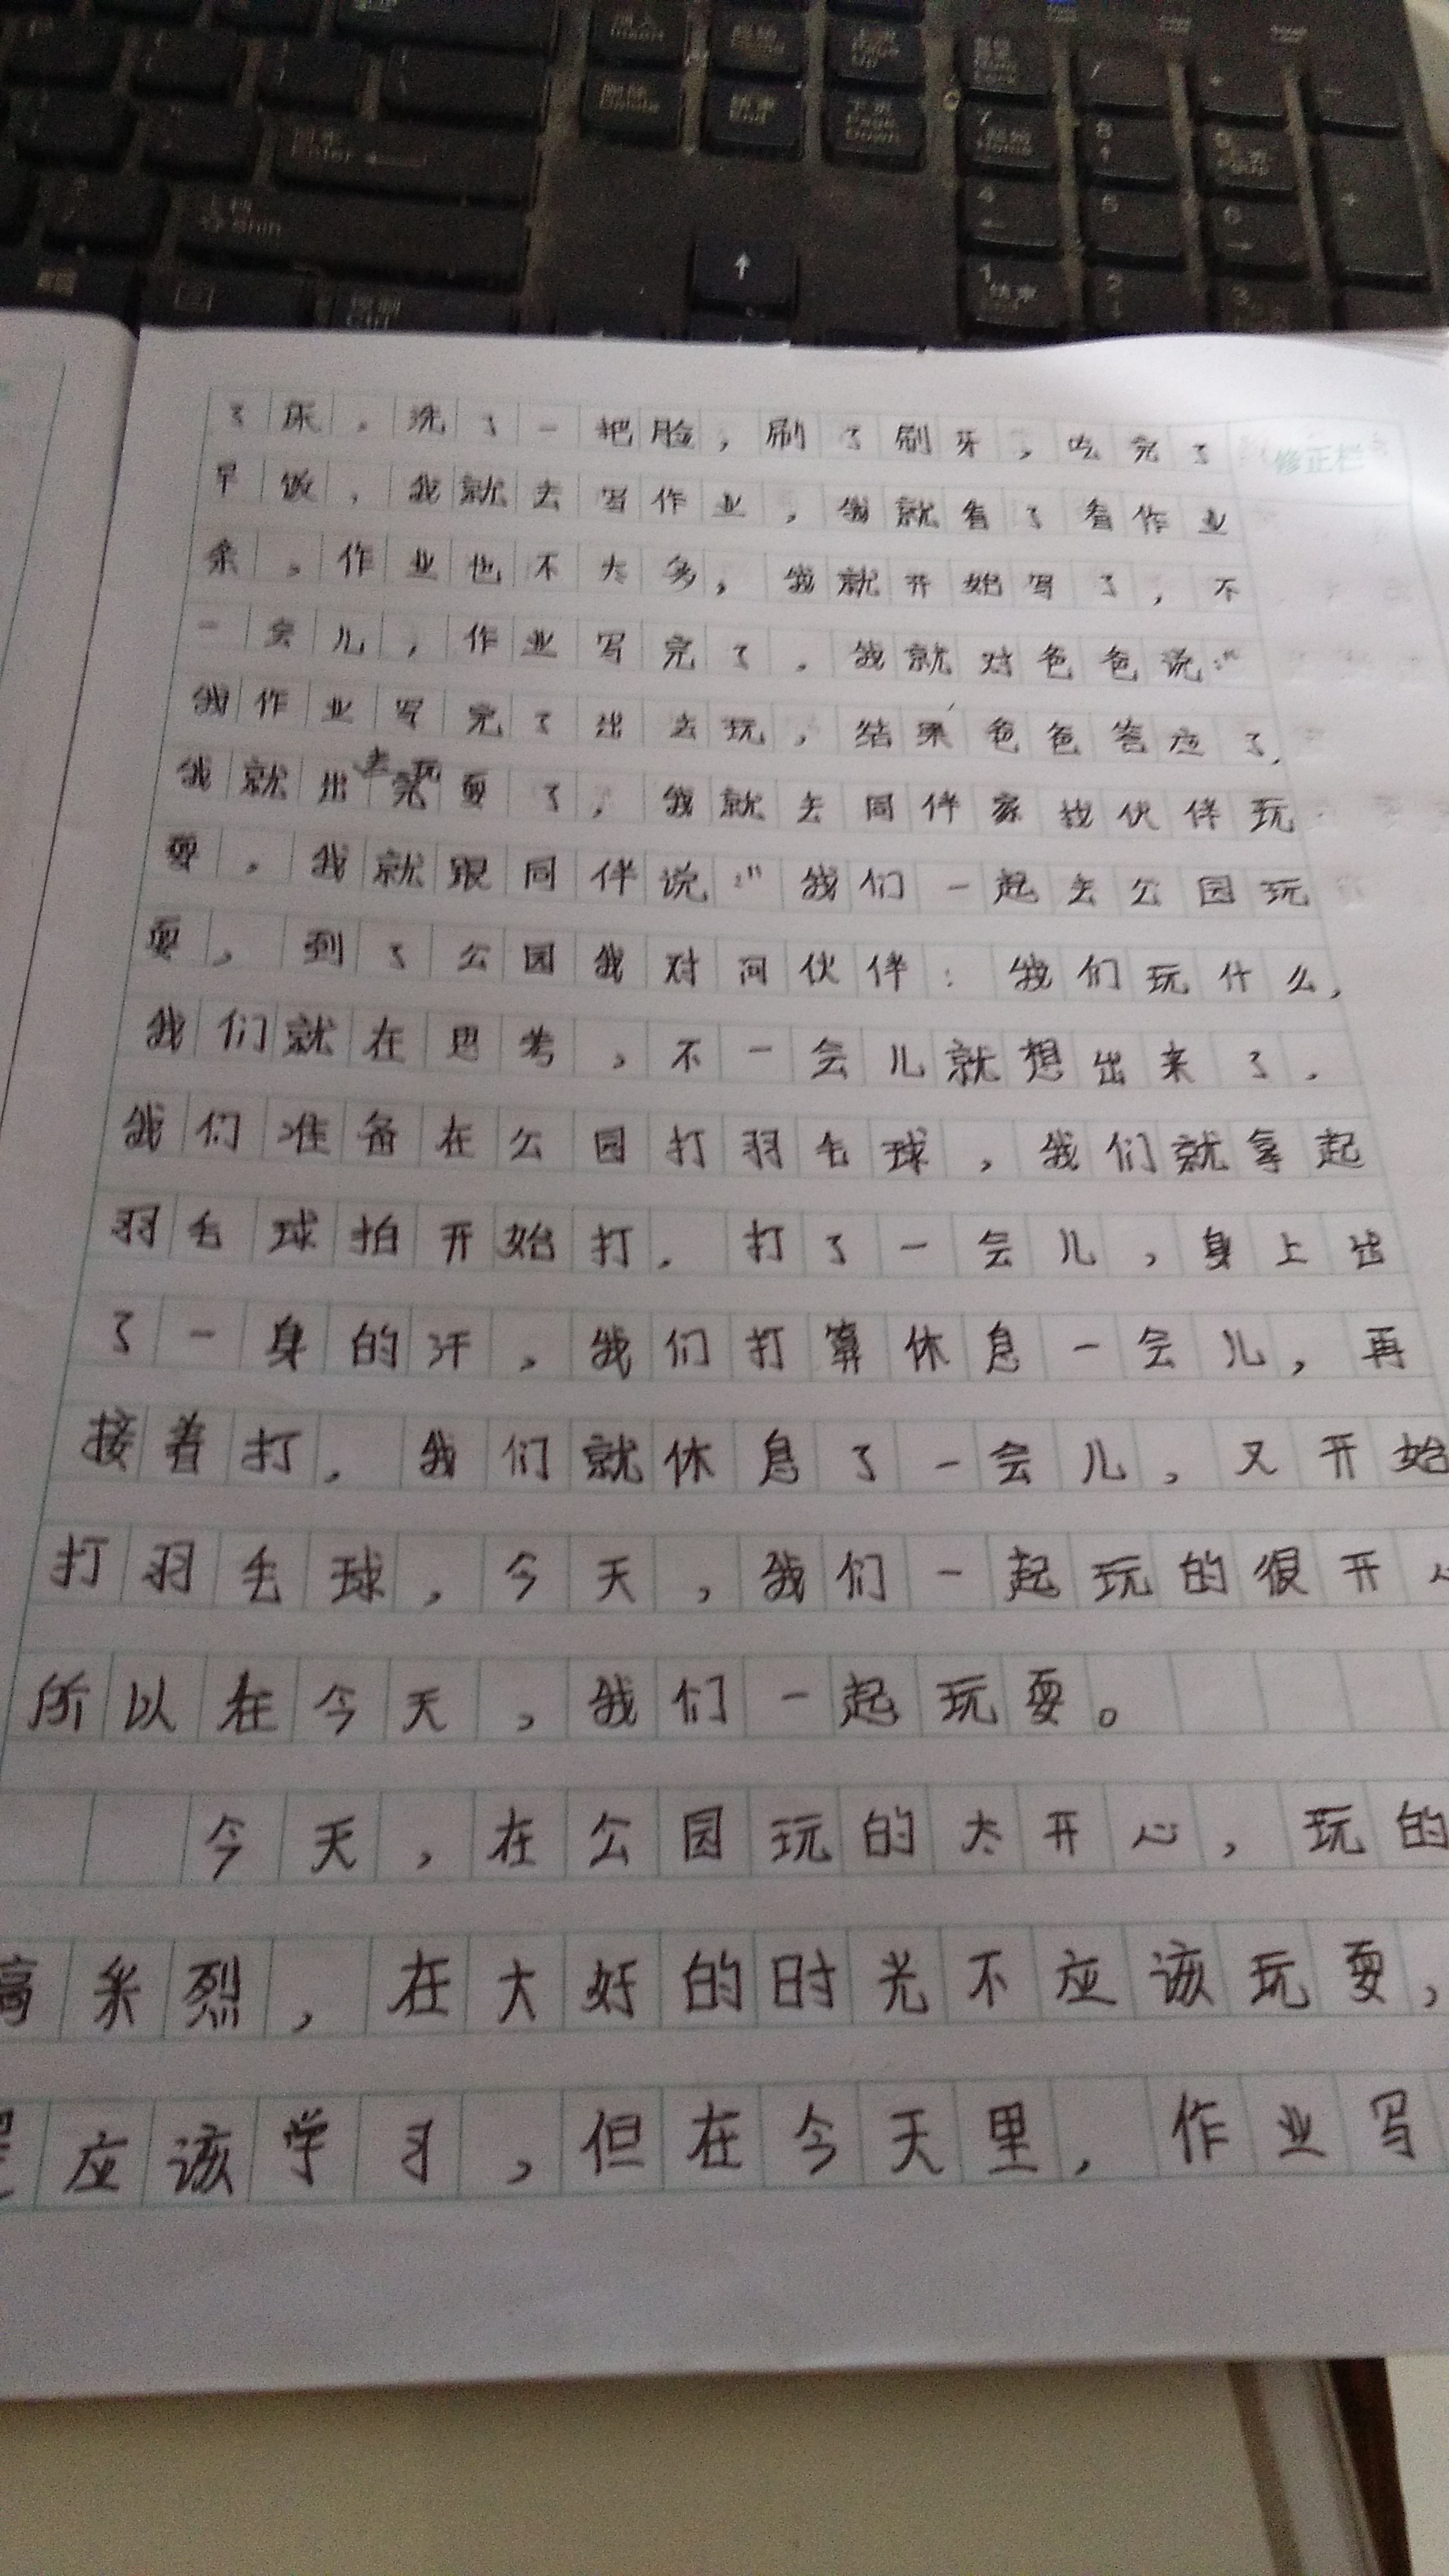 插入 Insert
删除 Delete
结束 End
下页 Page Down
回车 Enter
上档 Shift
7 起始 Home
8
4
5
6
1 结束
2
3
修正栏
了床。洗了一把脸，刷了刷牙，吃完了
早饭，我就去写作业，我就看了看作业
条。作业也不太多，我就开始写了，不
一会儿，作业写完了。我就对爸爸说:"
我作业写完了出去玩，结果爸爸答应了，
我就出去玩耍了，我就去同伴家找伙伴玩
耍。我就跟同伴说:"我们一起去公园玩
耍，到了公园我对问伙伴：我们玩什么，
我们就在思考，不一会儿就想出来了。
我们准备在公园打羽毛球，我们就拿起
羽毛球拍开始打。打了一会儿，身上出
了一身的汗，我们打算休息一会儿，再
接着打。我们就休息了一会儿，又开始
打羽毛球，今天，我们一起玩的很开心
所以在今天，我们一起玩耍。
今天，在公园玩的太开心，玩的
高采烈，在大好的时光不应该玩耍，
应该学习，但在今天里，作业写